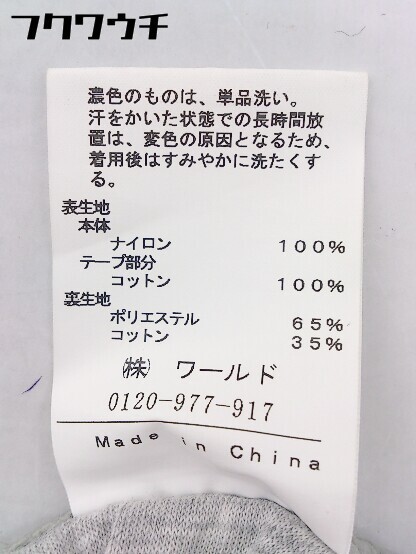 フクワウチ
濃色のものは、単品洗い。
汗をかいた状態での長時間放
置は、変色の原因となるため、
着用後はすみやかに洗たくす
る。
表生地
本体
ナイロン 100%
テープ部分
コットン 100%
裏生地
ポリエステル 65%
コットン 35%
㈱ ワールド
0120-977-917
Made in China